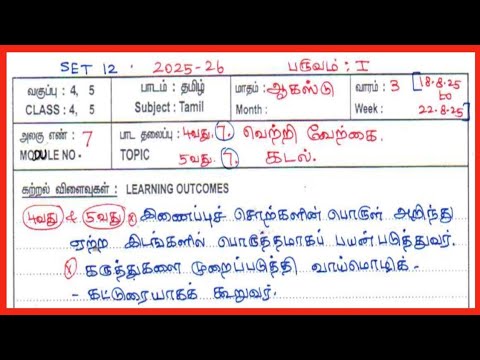 SET 12. 2025-26 பருவம் : I
வகுப்பு : 4, 5 பாடம் : தமிழ் மாதம் : ஆகஸ்டு வாரம் : 3 [18.8.25
CLASS : 4, 5 Subject : Tamil Month : Week : to 22.8.25]
அலகு எண் : 7 பாட தலைப்பு : 4வது. 7. வெற்றி வேற்கை.
MODULE NO - TOPIC 5வது. 7. கடல்.
கற்றல் விளைவுகள் : LEARNING OUTCOMES
4வது & 5வது இணைப்புச் சொற்களின் பொருள் அறிந்து
ஏற்ற இடங்களில் பொருத்தமாகப் பயன்படுத்துவர்.
கருத்துகளை முறைப்படுத்தி வாய்மொழிக் -
- கட்டுரையாகக் கூறுவர்.